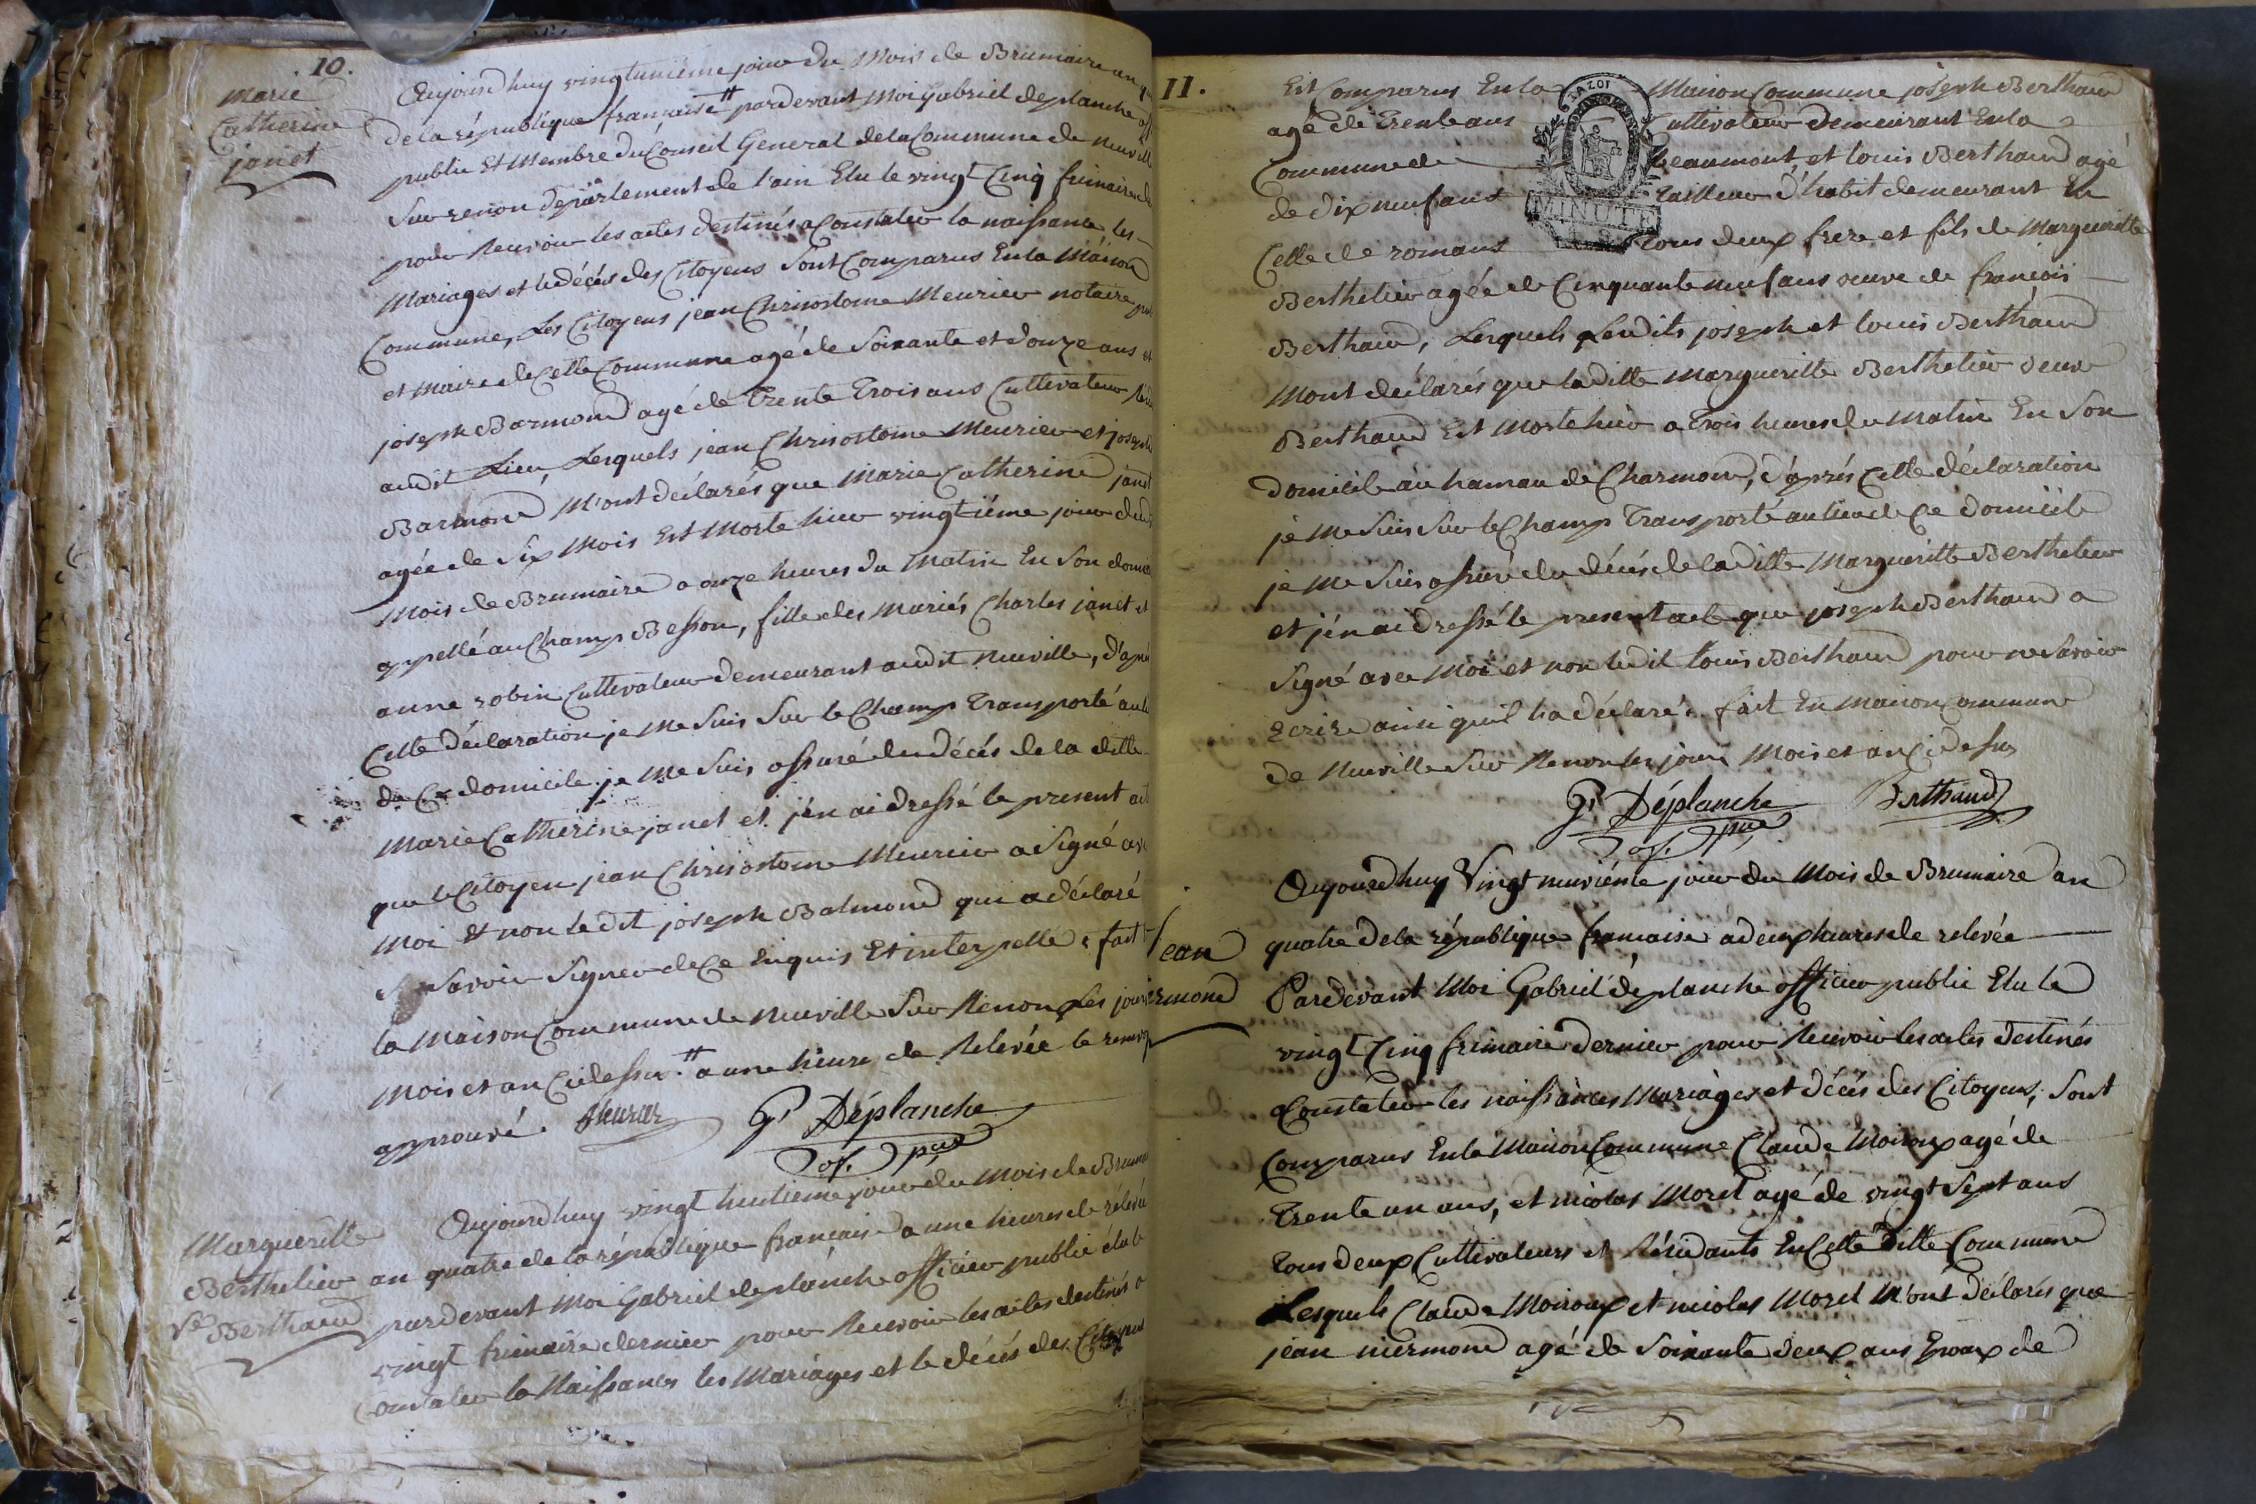 10.
Marie
Catherine
janet
Aujourdhuy vingtunième jour du Mois de Brumaire an
dela république française # pardevant Moi Gabriel deplanche
public Et Membre du Conseil General delaCommune de neuville
Sur renon département de l'ain Elu le vingt Cinq frimaire
pour Recevoir les actes destinés aConstater la naissance les
Mariages et le décés des Citoyens Sont Comparus Enla Maison
Commune, Les Citoyens jean Chrisostome Meurier notaire
et Maire deCette Commune agé de Soixante et douze ans et
joseph Barmond agé de Trente Trois ans Cultivateur
audit Lieu, Lesquels jean Chrisostome Meurier et joseph
Barmond M'ont déclarés que Marie Catherine janet
agée de Six Mois Est Morte hier vingtième jour dudit
Mois de Brumaire a onze heures du Matin En Son
appellé au Champ Besson, fille des Mariés Charles janet et
anne robin Cultivateur demeurant audit neuville, d'après
Cette déclaration je Me Suis Sur le Champ Transporté au
de Ce domicile je Me Suis assuré du décés de la ditte
Marie Catherine janet et j'en ai dressé le present
que le Citoyen jean Chrisostome Meurier a Signé
Moi Et non le dit joseph Balmond qui a déclaré
Savoir Signer de Ce Enquis Et interpellé : fait
la Maison Commune de Neuville Sur Renon Les jours
Mois et an Cidessus. # a une heure de Relévée le renvoy
approuvé. Meurier Gl Déplanche
of. pue
Margueritte
Berthelier
Ve Berthaud
Aujourdhuy vingt huitieme jour du Mois de
an quatre de la république française a une heures de rélévée
pardevant Moi Gabriel deplanche officier public élu le
vingt frimaire dernier pour Recevoir les actes destinés a
Constater la Naissances les Mariages et le décés des Citoyens
11.
Est Comparus Enla Maison Commune joseph Berthaud
agé de Trente ans Cultivateur demeurant Enla
Commune de beaumont, et louis Berthaud agé
de dix neuf ans tailleur d'habit demeurant En
Celle de romans tous deux frere et fils de Margueritte
MINUTE
Berthelier agée de Cinquante neuf ans veuve de françois
Berthaud, Lesquels Lesdits joseph et louis Berthaud
Mont déclarés que laditte Marguerittte Berthelier veuve
Berthaud Est Morte hier a Trois heures du Matin En Son
domicile au hameau de Charmond, d'après Cette déclaration
je Me Suis Sur le Champ Transporté au lieu de Ce domicile
je Me Suis assuré du décés de la ditte Margueritte Berthelier
et j'en ai dressé le present acte que joseph Berthaud a
Signé avec Moi et non ledit louis Berthaud pour ne Savoir
Ecrire ainsi quil l'a déclaré : fait En Maison Commune
de Neuville Sur Renon les jours Mois et an Cidessus
Gl Déplanche Berthaud
of. pue
Jean
Aujourdhuy Vingt neuviéme jour du Mois de Brumaire an
quatre dela république francaise a deux heures de relevée
Pardevant Moi Gabriel déplanche officier public Elu le
vingt Cinq frimaire dernier pour Recevoir les actes destinés
aConstater les naissances Mariages et décés des Citoyens, Sont
Comparus Enla Maison Commune Claude Moiroux agé de
Trente un ans, et nicolas Morel agé de vingt Sept ans
Tous deux Cultivateurs et Résidants En Cette ditte Commune
Lesquels Claude Moiroux et nicolas Morel M'ont déclarés que
jean niermond agé de Soixante deux ans Epoux de